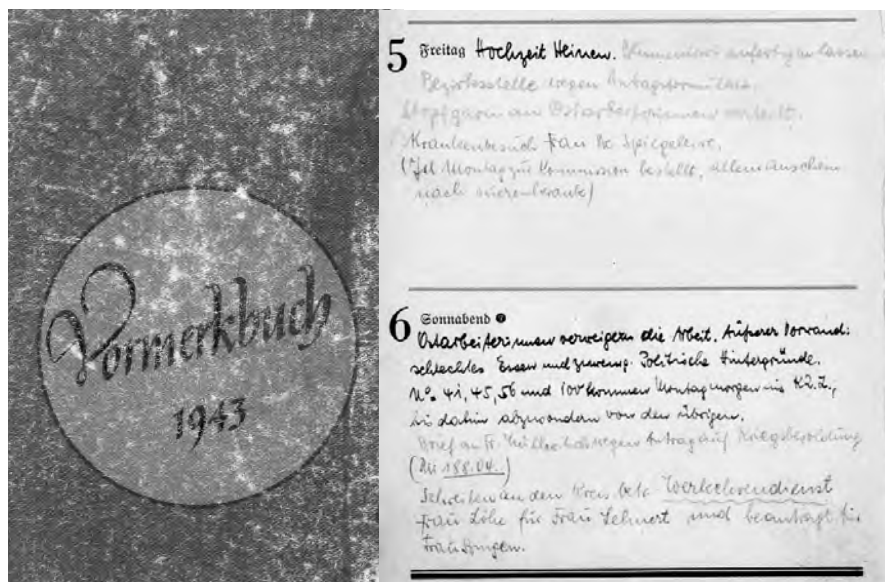 Vormerkbuch
1943
5 Freitag Hochzeit Heinen. Blumenkorb anfertigen lassen
Bezirksstelle wegen Antragsformulare.
Stopfgarn an Ostarbeiterinnen verteilt.
Krankenbesuch Frau
(Ist Montag zur Kommission bestellt, allem Anschein
nach nierenkrank)
6 Sonnabend
Ostarbeiterinnen verweigern die Arbeit. Äußerer Vorwand:
schlechtes Essen und zu wenig. Politische Hintergründe.
No. 41, 45, 56 und 100 kommen Montagmorgen ins KZ.,
bis dahin absondern von den übrigen.
Brief an Fr. wegen Antrag auf Kriegsbesoldung
188.04.)
Schreiben an den Kreis betr. Werksehrendienst
Frau Löhe für Frau Lehnert und beantragt für
Frau